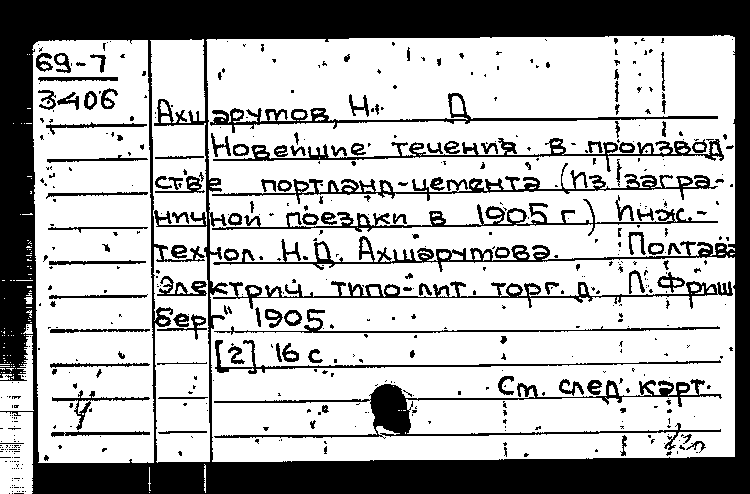 69-7
3406
Ахшарумов, Н. Д
Новейшие течения в производ-
стве портланд-цемента (Из загра-
ничной поездки в 1905 г.) Инж.-
технол. Н.Д. Ахшарумова. Полтава
Электрич. типо-лит. торг. д. "Л. Фриш-
берг", 1905.
[2], 16 с.
См. след. карт.